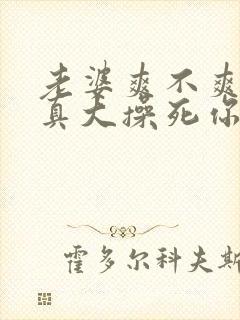 老婆爽不爽
真大操死你
霍多尔科夫斯